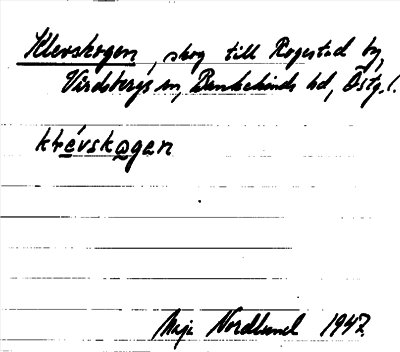 Klevskogen, skog till Rogestad by,
Vårdsbergs sn, Bankekinds hd, Östg.l.
klèvskogen
Maja Nordlund 1947